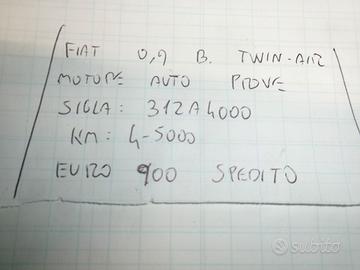 FIAT 0,9 B. TWIN-AIR
MOTORE AUTO PROVE
SIGLA: 312A4000
KM: 4-5000
EURO 900 SPEDITO
subito